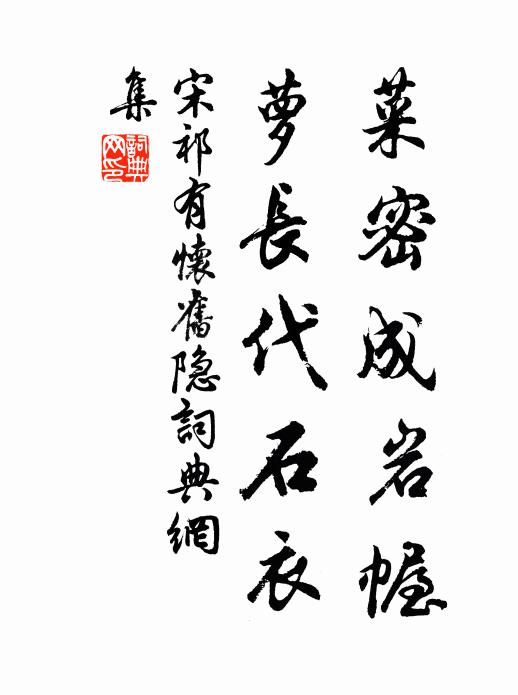 菜密成岩幄
萝長代石衣
宋祁有懷舊隐詞典網
集
詞典
网印